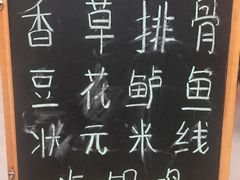 香草排骨
豆花鲈鱼
状元米线